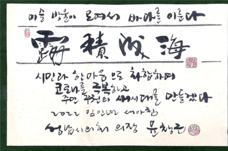 이슬 방울이 모여서 바다를 이룬다
露積成海
시민과 한마음으로 화합하여
코로나를 극복하고
주민 복원의 새시대를 만들겠다
2022 임인년 새아침
의회 의장 윤창근